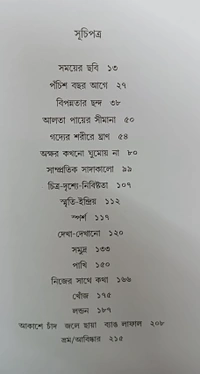 সূচিপত্র
সময়ের ছবি ১৩
পঁচিশ বছর আগে ২৭
বিপন্নতার ছন্দ ৩৮
আলতা পায়ের সীমানা ৫০
গদ্যের শরীরে ঘ্রাণ ৫৪
অক্ষর কখনো ঘুমোয় না ৮০
সাম্প্রতিক সাদাকালো ৯৯
চিত্র-দৃশ্যে-নিবিষ্টতা ১০৭
স্মৃতি-ইন্দ্রিয় ১১২
স্পর্শ ১১৭
দেখা-দেখানো ১২০
সমুদ্র ১৩৩
পাখি ১৫০
নিজের সাথে কথা ১৬৬
খোঁজ ১৭৫
লন্ডন ১৮৭
আকাশে চাঁদ জলে ছায়া ব্যাঙ লাফাল ২০৮
ভ্রম/আবিষ্কার ২১৫